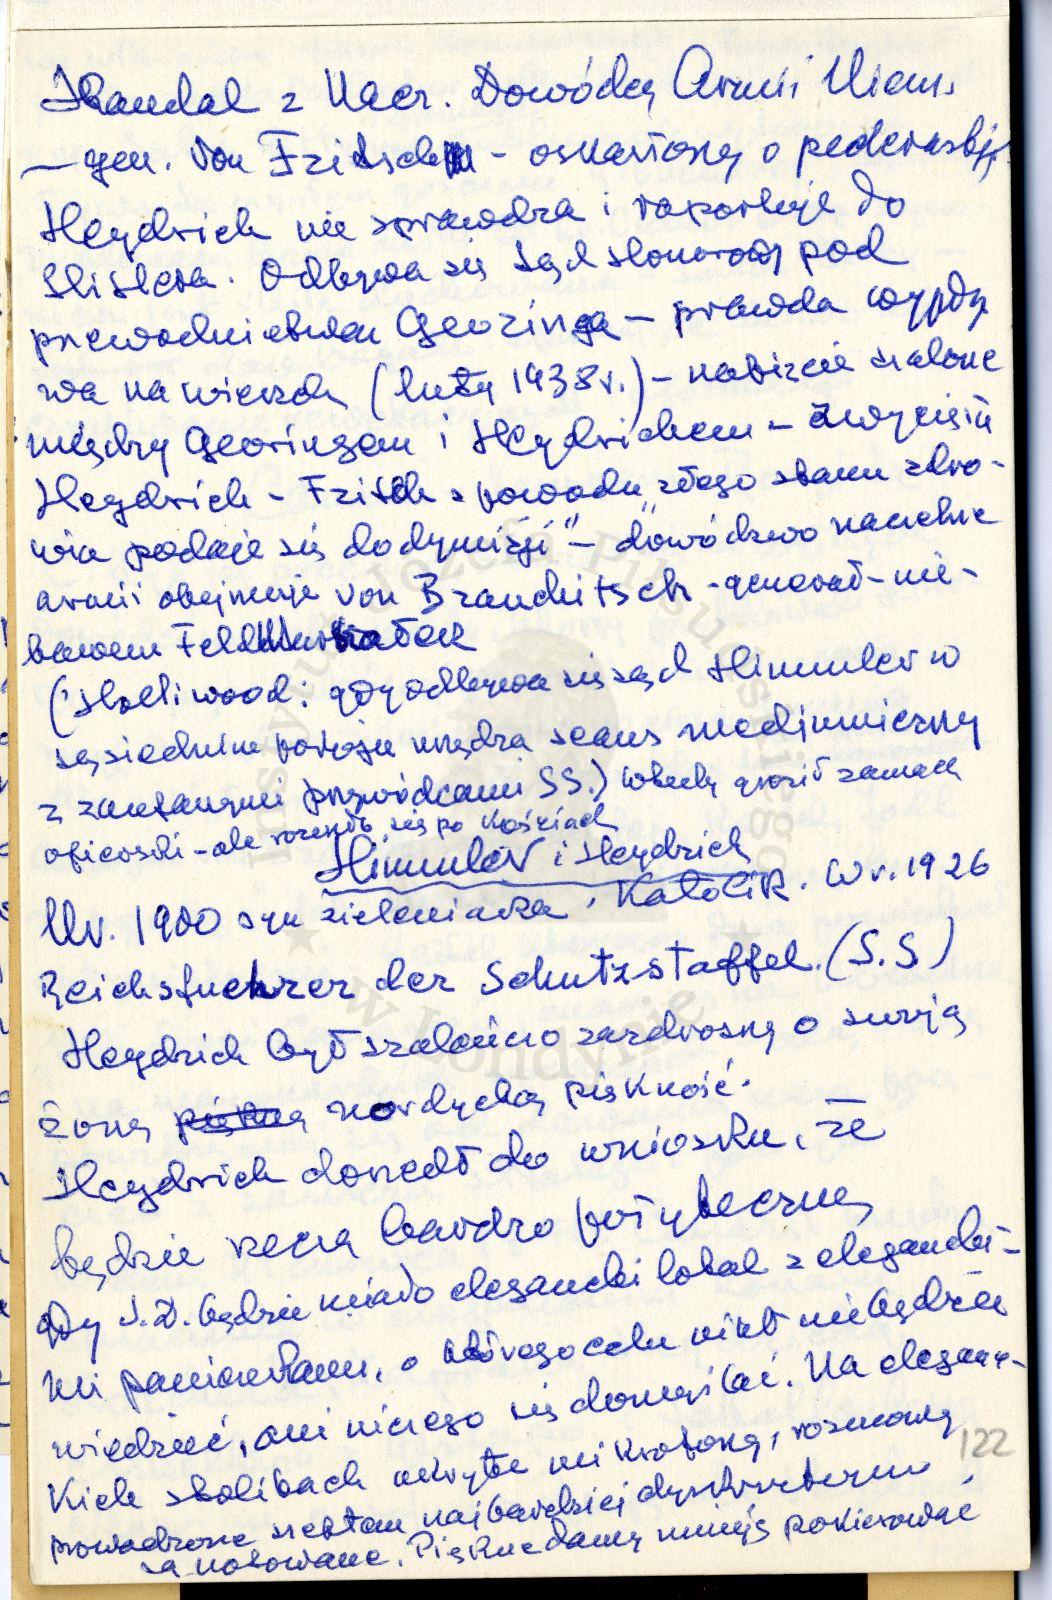 Skandal z Nacz. Dowódcą Armii Niem.
— gen. von Fritschem - oskarżony o pederastję
Heydrich nie sprawdza i raportuje do
Hitlera. Odbywa się sąd honorowy pod
przewodnictwem Georinga — prawda wypły
wa na wierzch (luty 1938 r.) - nabicie szalone
między Georingem i Heydrichem - zwycięża
Heydrich - Fritsch z powodu "złego stanu zdro-
wia podaje się do dymisji" - dowództwo naczelne
armii obejmuje von Brauchitsch - generał - nie-
bawem Feldmarszałek
(Holliwood: gdy odbywa się sąd Himmler w
sąsiednim pokoju urządza seans medjumiczny
z zaufanymi przywódcami SS.) Wtedy groził zamach
oficerski - ale rozeszło się po kościach
Himmler i Heydrich
Ur. 1900 syn zieleniarza. Katolik. W r. 1926
Reichsfuehrer der Schutzstaffel. (S.S)
Heydrich był szaleńczo zazdrosny o swoją
żonę piękną nordycką piękność.
Heydrich doszedł do wniosku, że
będzie rzeczą bardzo pożyteczną,
gdy S.D. będzie miało elegancki lokal z eleganckie-
mi panienkami, o którego celu nikt nie będzie
wiedzieć, ani niczego się domyślać. Na elegan-
kich stolikach ukryte mikrofony, rozmowy
prowadzone szeptem najbardziej dyskretnym
są notowane. Piękne damy umieją pokierować
122
Instytut Józefa Piłsudskiego
w Londynie